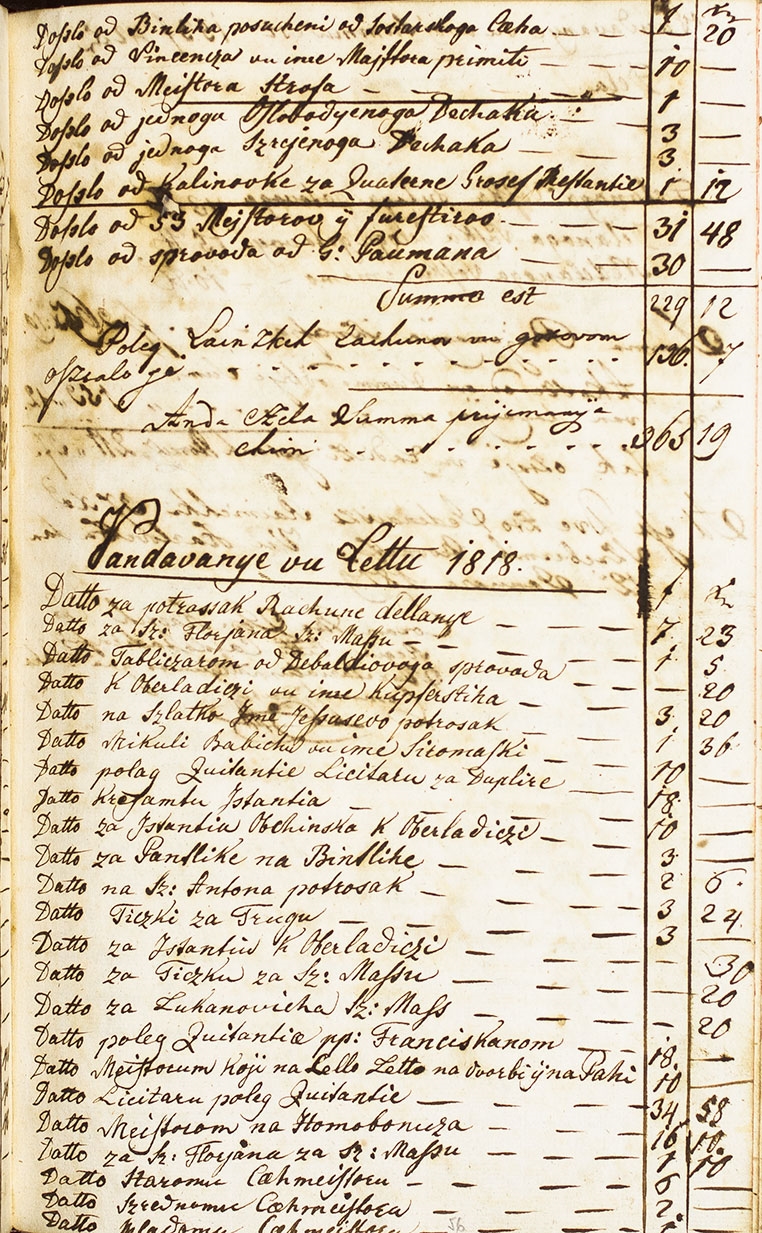 f xr
Doslo od Bintika posucheni od Sostarskoga Cæha — 1 20
Doslo od Vincencza vu ime Majstora primiti — — 10 —
Doslo od Meistora Strosa — — — — 1 —
Doslo od jednoga Oslobodyenoga Dechaka — 3 —
Doslo od jednoga Szrejenoga Dechaka — 3 —
Doslo od Kalinovke za Quaterne Grosef Mestantie 1 12
Doslo od 53 Mejstorov ÿ furestirov — — 31 48
Doslo od sprovoda od G: Paŭmana — — 30 —
Summa est 229 12
Poleg Lainzkih Rachunov vu gotovom
osztalo je 136 7
Anda Czela Summa prijemanya
chini 365 19
Vandavanye vu Lettu 1818.
f xr
Datto za potrossak Rachune dellanye — — 7 23
Datto za Sz: Florjana Sz: Massu — — — 1 5
Datto Tabliczarom od Debaldiovoga sprovoda — 20
Datto K Oberladiczi vu ime Kupferstika — — 3 20
Datto na Szlatko Jme Jessusevo potrosak — — 1 36
Datto Mikuli Babichu vu ime Siromaski — — 10 —
Datto polag Quitantie Licitaru za Duplire — 18 —
Datto Kresamtu Jstantia — — — 10 —
Datto za Jstantiu Obchinsku K Oberladiczi — 3 —
Datto za Pantlike na Bintlike — — — 2 6
Datto na Sz: Antona potrosak — — — 3 24
Datto Ticzki za Trugu — — — 3 —
Datto za Jstantiu K Oberladiczi — — — 30
Datto za Ticzku za Sz: Massu — — — 20
Datto za Lukanovicha Sz: Mass — — — 20
Datto poleg Quitantiæ pp: Franciskanom — 18 —
Datto Meistorum Koji na Lello Letto na dvorbi ÿ na Paki 10
Datto Licitaru poleg Quitantie — — 34 58
Datto Meistorom na Homobonusa — — 16 10
Datto za Sz: Florjana za Sz: Massu — — 1 10
Datto Staromu Cæhmeistoru — — — 6
Datto Szrednomu Cæhmeistoru — — — 2
Datto Mladomu Cæhmeistoru
56